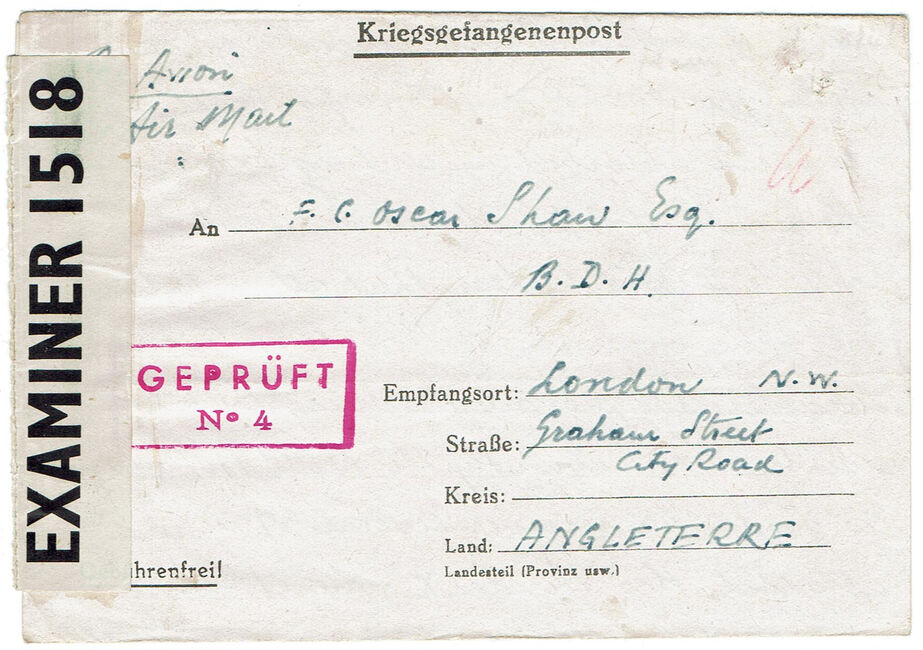 Kriegsgefangenenpost
Avion
Air Mail
EXAMINER 1518
An F. C. Oscar Shaw Esq.
B. D. H.
GEPRÜFT
No 4
Empfangsort: London N. W.
Straße: Graham Street
City Road
Kreis:
Land: ANGLETERRE
Landesteil (Provinz usw.)
hrenfrei!